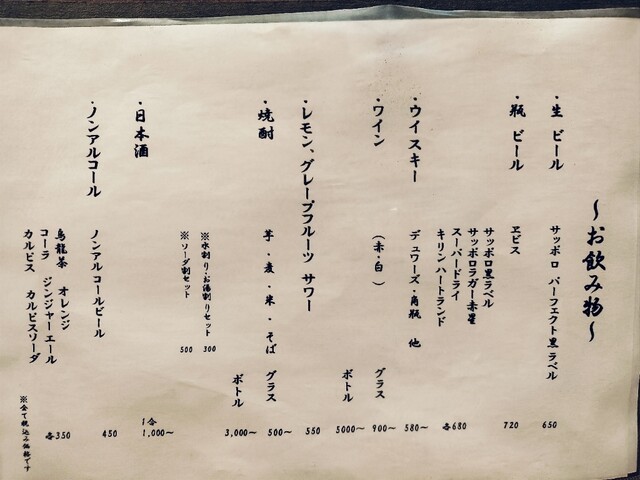 ～お飲み物～
・生 ビール サッポロ パーフェクト黒ラベル 650
・瓶 ビール ヱビス 720
サッポロ黒ラベル
サッポロラガー赤星
スーパードライ
キリン ハートランド 各680
・ウイスキー デュワーズ・角瓶 他 580～
・ワイン (赤・白) グラス 900～
ボトル 5000～
・レモン、グレープフルーツ サワー 550
・焼酎 芋・麦・米・そば グラス 500～
ボトル 3,000～
※水割り・お湯割りセット 300
※ソーダ割セット 500
・日本酒 1合 1,000～
・ノンアルコール ノンアルコールビール 450
烏龍茶 オレンジ
コーラ ジンジャーエール
カルピス カルピスソーダ 各350
※全て税込み価格です